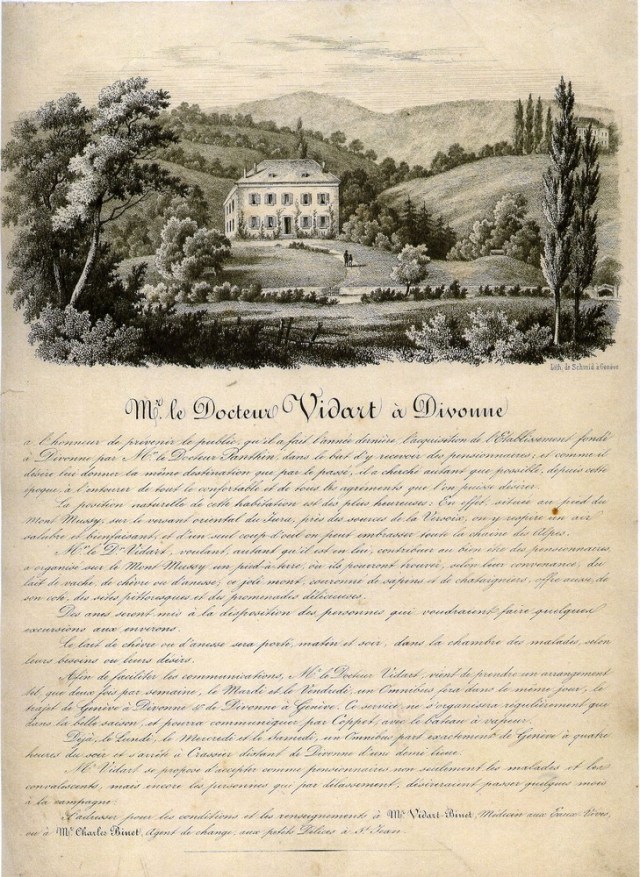 Lith. de Schmid à Genève
Mr. le Docteur Vidart à Divonne
a l'honneur de prévenir le public, qu'il a fait l'année dernière l'acquisition de l'Etablissement fondé
à Divonne par Mr. le Docteur Panthin, dans le but d'y recevoir des pensionnaires; et comme il
désire lui donner la même destination que par le passé, il a cherché autant que possible, depuis cette
époque à l'entourer de tout le confortable et de tous les agréments que l'on puisse désirer.
La position naturelle de cette habitation est des plus heureuses: En effet, située au pied du
Mont Mussy, sur le versant oriental du Jura, près des sources de la Versoix, on y respire un air
salubre et bienfaisant, et d'un seul coup d'oeil on peut embrasser toute la chaîne des Alpes.
Mr. le Dr. Vidart, voulant, autant qu'il est en lui, contribuer au bien être des pensionnaires,
a organisé sur le Mont Mussy un pied-à-terre, où ils pourront trouver, selon leur convenance, du
lait de vache, de chèvre ou d'ânesse; ce joli mont, couronné de sapins et de chataigniers, offre aussi, de
son coté, des sites pittoresques et des promenades délicieuses.
Des ânes seront mis à la disposition des personnes qui voudraient faire quelques
excursions aux environs.
Le lait de chèvre ou d'ânesse sera porté, matin et soir, dans la chambre des malades, selon
leurs besoins ou leurs désirs.
Afin de faciliter les communications, Mr. le Docteur Vidart, vient de prendre un arrangement
tel, que deux fois par semaine, le Mardi et le Vendredi, un Omnibus fera dans le même jour, le
trajet de Genève à Divonne & de Divonne à Genève. Ce service ne s'organisera régulièrement que
dans la belle saison, et pourra communiquer, par Coppet, avec le bateau à vapeur.
Déjà, le Lundi, le Mercredi et le Samedi, un Omnibus part exactement de Genève à quatre
heures du soir et s'arrête à Crassier distant de Divonne d'une demi lieue.
Mr. Vidart se propose d'accepter comme pensionnaires non seulement les malades et les
convalescents, mais encore les personnes qui par délassement, désireraient passer quelques mois
à la campagne.
S'adresser pour les conditions et les renseignements à Mr. Vidart-Binet, Médecin aux Eaux-Vives,
ou à Mr. Charles Binet, Agent de change, aux petits Délices à St. Jean.